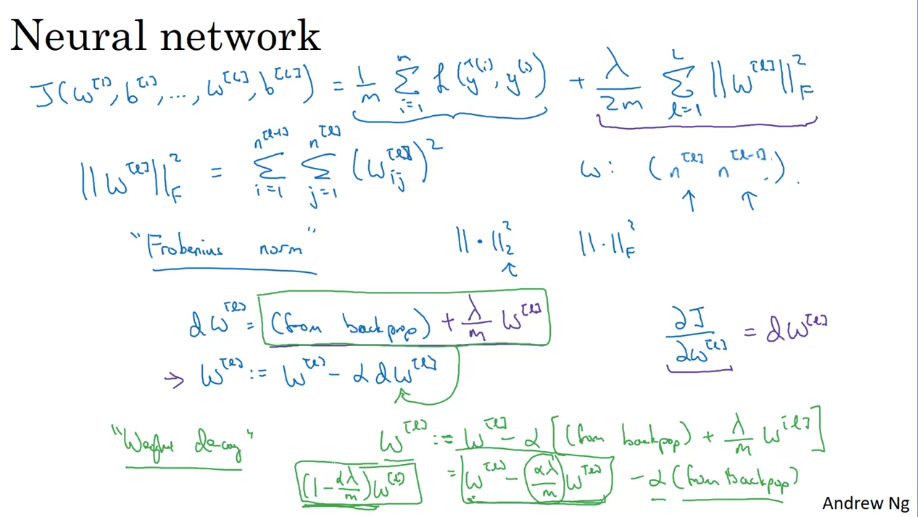 Neural network
J(w^[1], b^[1], ..., w^[L], b^[L]) = 1/m Σ_{i=1}^{m} L(ŷ^(i), y^(i)) + λ/2m Σ_{l=1}^{L} ||w^[l]||²_F
||w^[l]||²_F = Σ_{i=1}^{n^[l-1]} Σ_{j=1}^{n^[l]} (w_{ij}^[l])² w: (n^[l] n^[l-1]).
"Frobenius norm" ||·||²_2 ||·||²_F
dw^[l] = (from backprop) + λ/m w^[l] ∂J/∂w^[l] = dw^[l]
→ w^[l] := w^[l] - α dw^[l]
"Weight decay" w^[l] := w^[l] - α [(from backprop) + λ/m w^[l]]
(1 - αλ/m) w^[l] = w^[l] - αλ/m w^[l] - α (from backprop)
Andrew Ng